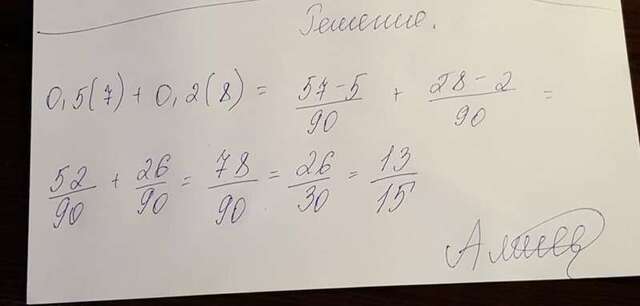 Решение.
0,5(7) + 0,2(8) = 57-5/90 + 28-2/90 =
52/90 + 26/90 = 78/90 = 26/30 = 13/15
Алиев